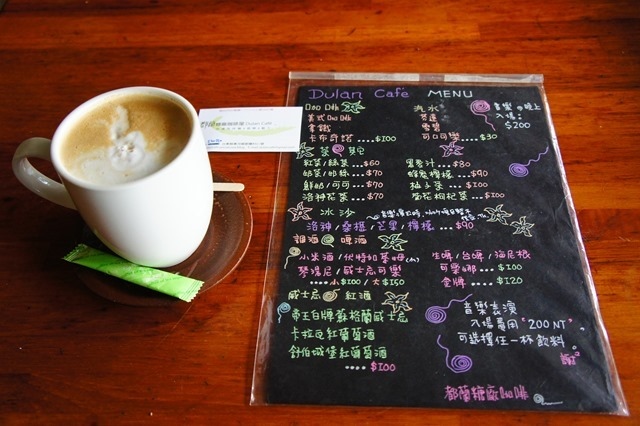 Dulan Café MENU
美式
拿鐵
卡布奇諾....$100
汽水
芬達
雪碧
可口可樂....$30
音樂 晚上
入場:
$200
Dulan Café
紅茶/綠茶....$60
奶茶/奶綠....$70
鮮奶/可可....$70
洛神花茶....$70
黑麥汁....$80
蜂蜜檸檬....$90
柚子茶....$100
菊花枸杞茶....$100
冰沙
洛神/桑椹/芒果/檸檬....$90
調酒 啤酒
小米酒/伏特加萊姆(小)
琴湯尼/威士忌可樂
....小$100/大$150
生啤/台啤/海尼根
可樂娜....$100
金牌....$120
威士忌 紅酒
帝王白牌蘇格蘭威士忌
卡拉瓦紅葡萄酒
舒伯城堡紅葡萄酒
....$100
音樂表演
入場費用"200 NT",
可選擇任一杯飲料。
謝²
都蘭糖廠